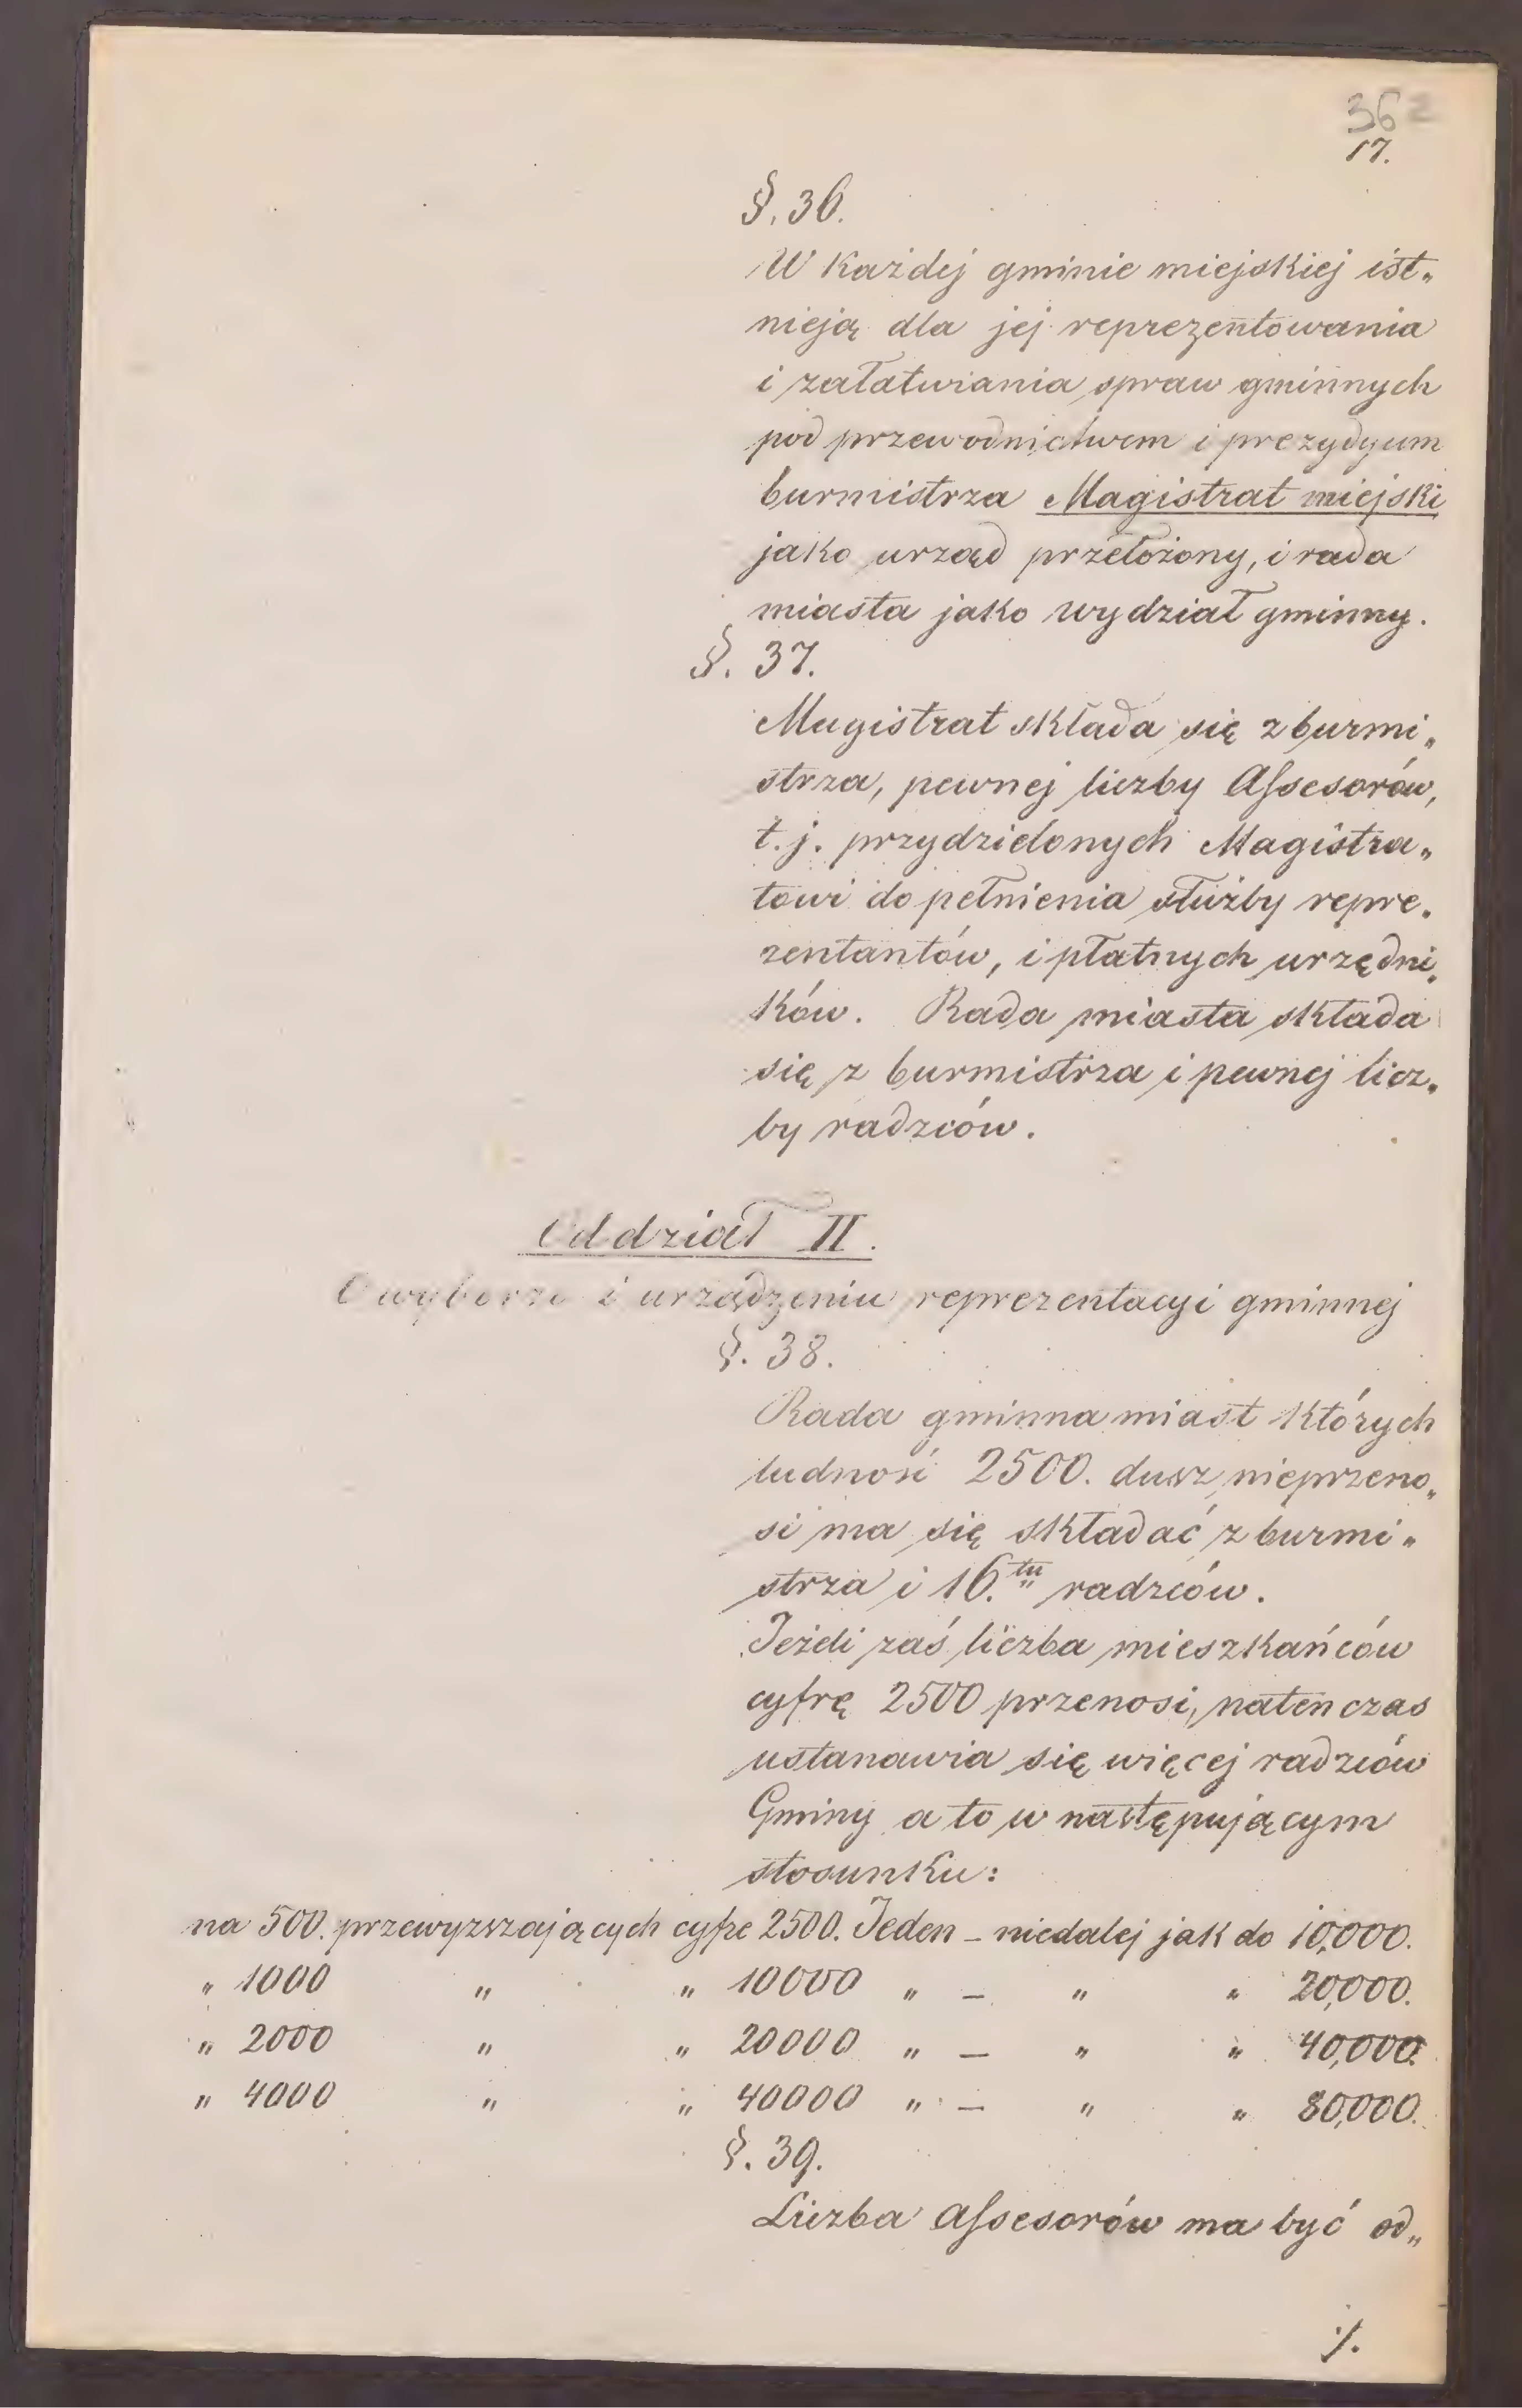 362
17.
§. 36.
W każdej gminie miejskiej ist„
nieją dla jej reprezentowania
i załatwiania spraw gminnych
pod przewodnictwem i prezydyum
burmistrza Magistrat miejski
jako urząd przełożony, i rada
miasta jako wydział gminny.
§. 37.
Magistrat składa się z burmi„
strza, pewnej liczby Assesorów,
t. j. przydzielonych Magistra„
towi do pełnienia służby repre„
zentantów, i płatnych urzędni„
ków. Rada miasta składa
się z burmistrza i pewnej licz„
by radzców.
Oddział II.
O wyborze i urządzeniu reprezentacyi gminnej
§. 38.
Rada gminna miast których
ludność 2500. dusz nieprzeno„
si ma się składać z burmi„
strza i 16.tu radzców.
Jeżeli zaś liczba mieszkańców
cyfrę 2500 przenosi, natenczas
ustanawia się więcej radzców
Gminy a to w następującym
stosunku:
na 500. przewyższających cyfrę 2500. Jeden – niedalej jak do 10,000.
„ 1000 „ „ 10000 „ – „ „ 20,000.
„ 2000 „ „ 20000 „ – „ „ 40,000.
„ 4000 „ „ 40000 „ – „ „ 80,000.
§. 39.
Liczba Assesorów ma być od„
./.